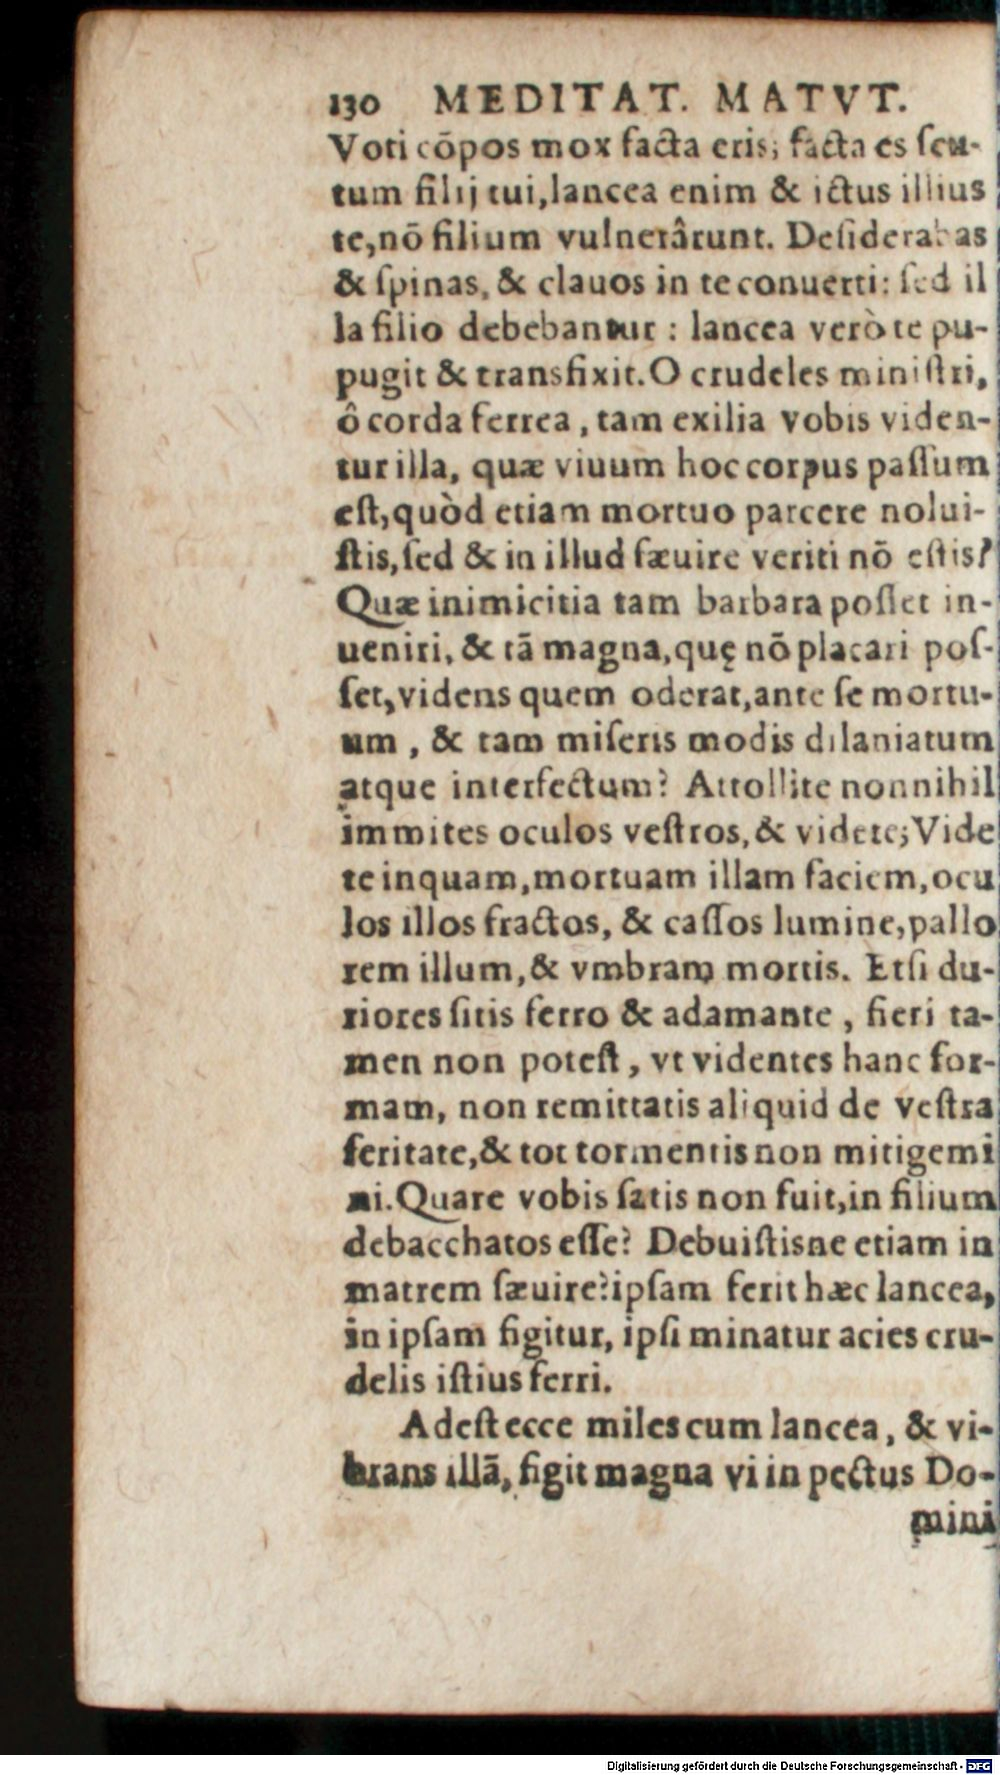 130 MEDITAT. MATVT.
Voti cōpos mox facta eris; facta es ſcu-
tum filij tui, lancea enim & ictus illius
te, nō filium vulnerârunt. Deſiderabas
& ſpinas, & clauos in te conuerti: ſed il
la filio debebantur : lancea verò te pu-
pugit & transfixit. O crudeles miniſtri,
ô corda ferrea, tam exilia vobis viden-
tur illa, quæ viuum hoc corpus paſſum
eſt, quòd etiam mortuo parcere nolui-
ſtis, ſed & in illud ſæuire veriti nō eſtis?
Quæ inimicitia tam barbara poſſet in-
ueniri, & tā magna, quę nō placari poſ-
ſet, videns quem oderat, ante ſe mortu-
um , & tam miſeris modis dilaniatum
atque interfectum? Attollite nonnihil
immites oculos veſtros, & videte; Vide
te inquam, mortuam illam faciem, ocu
los illos fractos, & caſſos lumine, pallo
rem illum, & vmbram mortis. Etſi du-
riores ſitis ferro & adamante , fieri ta-
men non poteſt , vt videntes hanc for-
mam, non remittatis aliquid de veſtra
feritate, & tot tormentis non mitigemi
ni. Quare vobis ſatis non fuit, in filium
debacchatos eſſe? Debuiſtisne etiam in
matrem ſæuire? ipſam ferit hæc lancea,
in ipſam figitur, ipſi minatur acies cru-
delis iſtius ferri.
Adeſt ecce miles cum lancea, & vi-
brans illā, figit magna vi in pectus Do-
mini
Digitalisierung gefördert durch die Deutsche Forschungsgemeinschaft - DFG